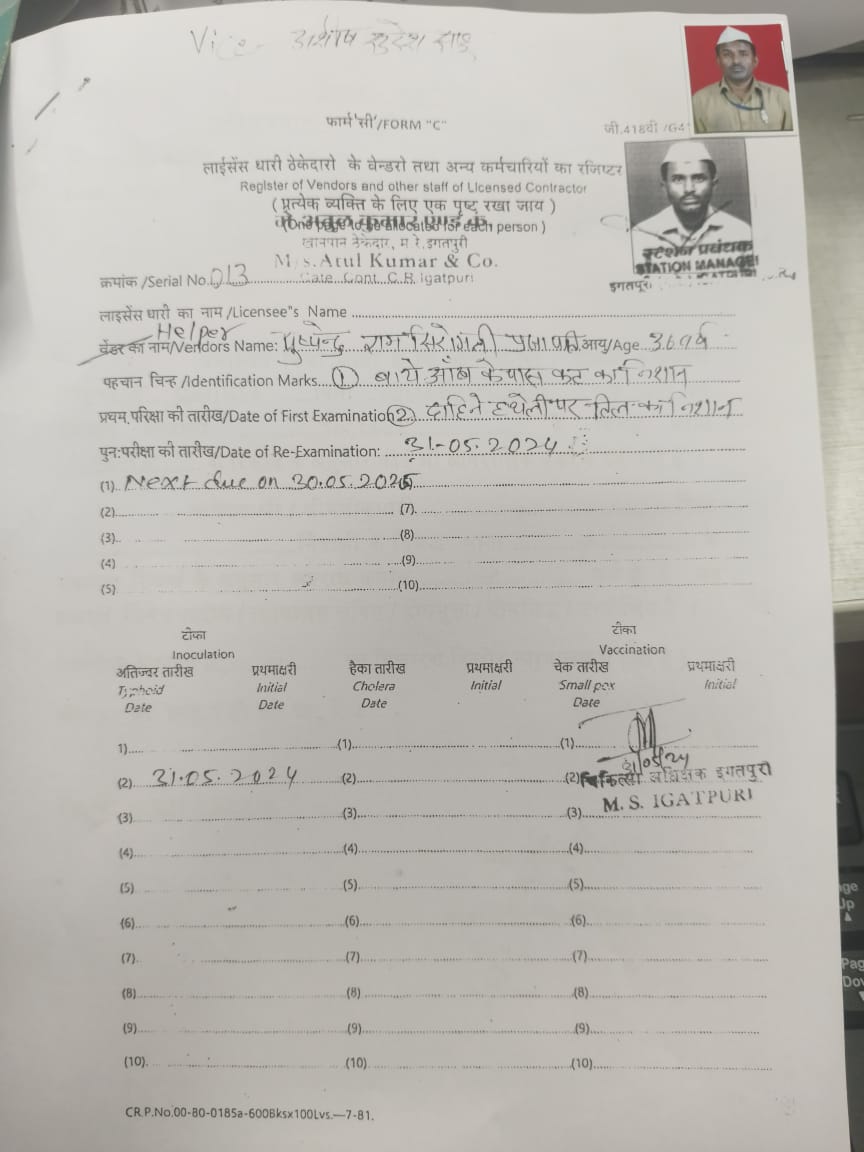 Vice आशीष सुरेश साहू
फार्म'सी'/FORM "C"
जी.418बी /G41
लाईसेंस धारी ठेकेदारो के वेन्डरो तथा अन्य कर्मचारियों का रजिष्टर
Register of Vendors and other staff of Licensed Contractor
( प्रत्येक व्यक्ति के लिए एक पृष्ट रखा जाय )
मे. अतुल कुमार एण्ड कं.
(One page to be allocated for each person )
खानपान ठेकेदार, म रे.इगतपुरी
M/s.Atul Kumar & Co.
क्रपांक /Serial No. 013 Cate. Cont. C.R.Igatpuri
स्टेशन प्रबंधक
STATION MANAGER
इगतपुरी
लाइसेंस धारी का नाम /Licensee"s Name
Helper
वेंडर का नाम/Vendors Name: पुष्पेन्द्र राम सिरोमनी प्रजापति आयु/Age 36 वर्ष
पहचान चिन्ह /Identification Marks. (1) बाये आँख के पास कट का निशान
प्रथम परिक्षा की तारीख/Date of First Examination (2) दाहिने हथेली पर तिल का निशान
पुन:परीक्षा की तारीख/Date of Re-Examination: 31-05.2024
(1) Next due on 30.05.2025
(2) (7).
(3) (8)
(4) (9)
(5) (10)
टीका टीका
Inoculation Vaccination
अतिज्वर तारीख प्रथमाक्षरी हैका तारीख प्रथमाक्षरी चेक तारीख प्रथमाक्षरी
Typhoid Initial Cholera Initial Small pox Initial
Date Date Date Date
1) (1) (1)
31/05/24
(2) 31.05.2024 (2) (2) चिकित्सा अधिक्षक इगतपुरी
M. S. IGATPURI
(3) (3) (3)
(4) (4) (4)
(5) (5) (5)
(6) (6) (6)
(7). (7) (7)
(8) (8) (8)
(9) (9) (9)
(10). (10) (10)
CR.P.No.00-80-0185a-600Bksx100Lvs.—7-81.